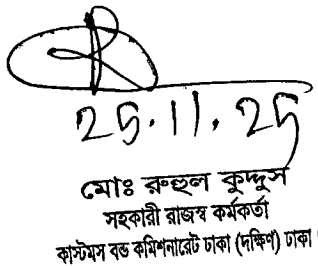 25.11.25
মোঃ রুহুল কুদ্দুস
সহকারী রাজস্ব কর্মকর্তা
কাস্টমস বন্ড কমিশনারেট ঢাকা (দক্ষিণ) ঢাকা